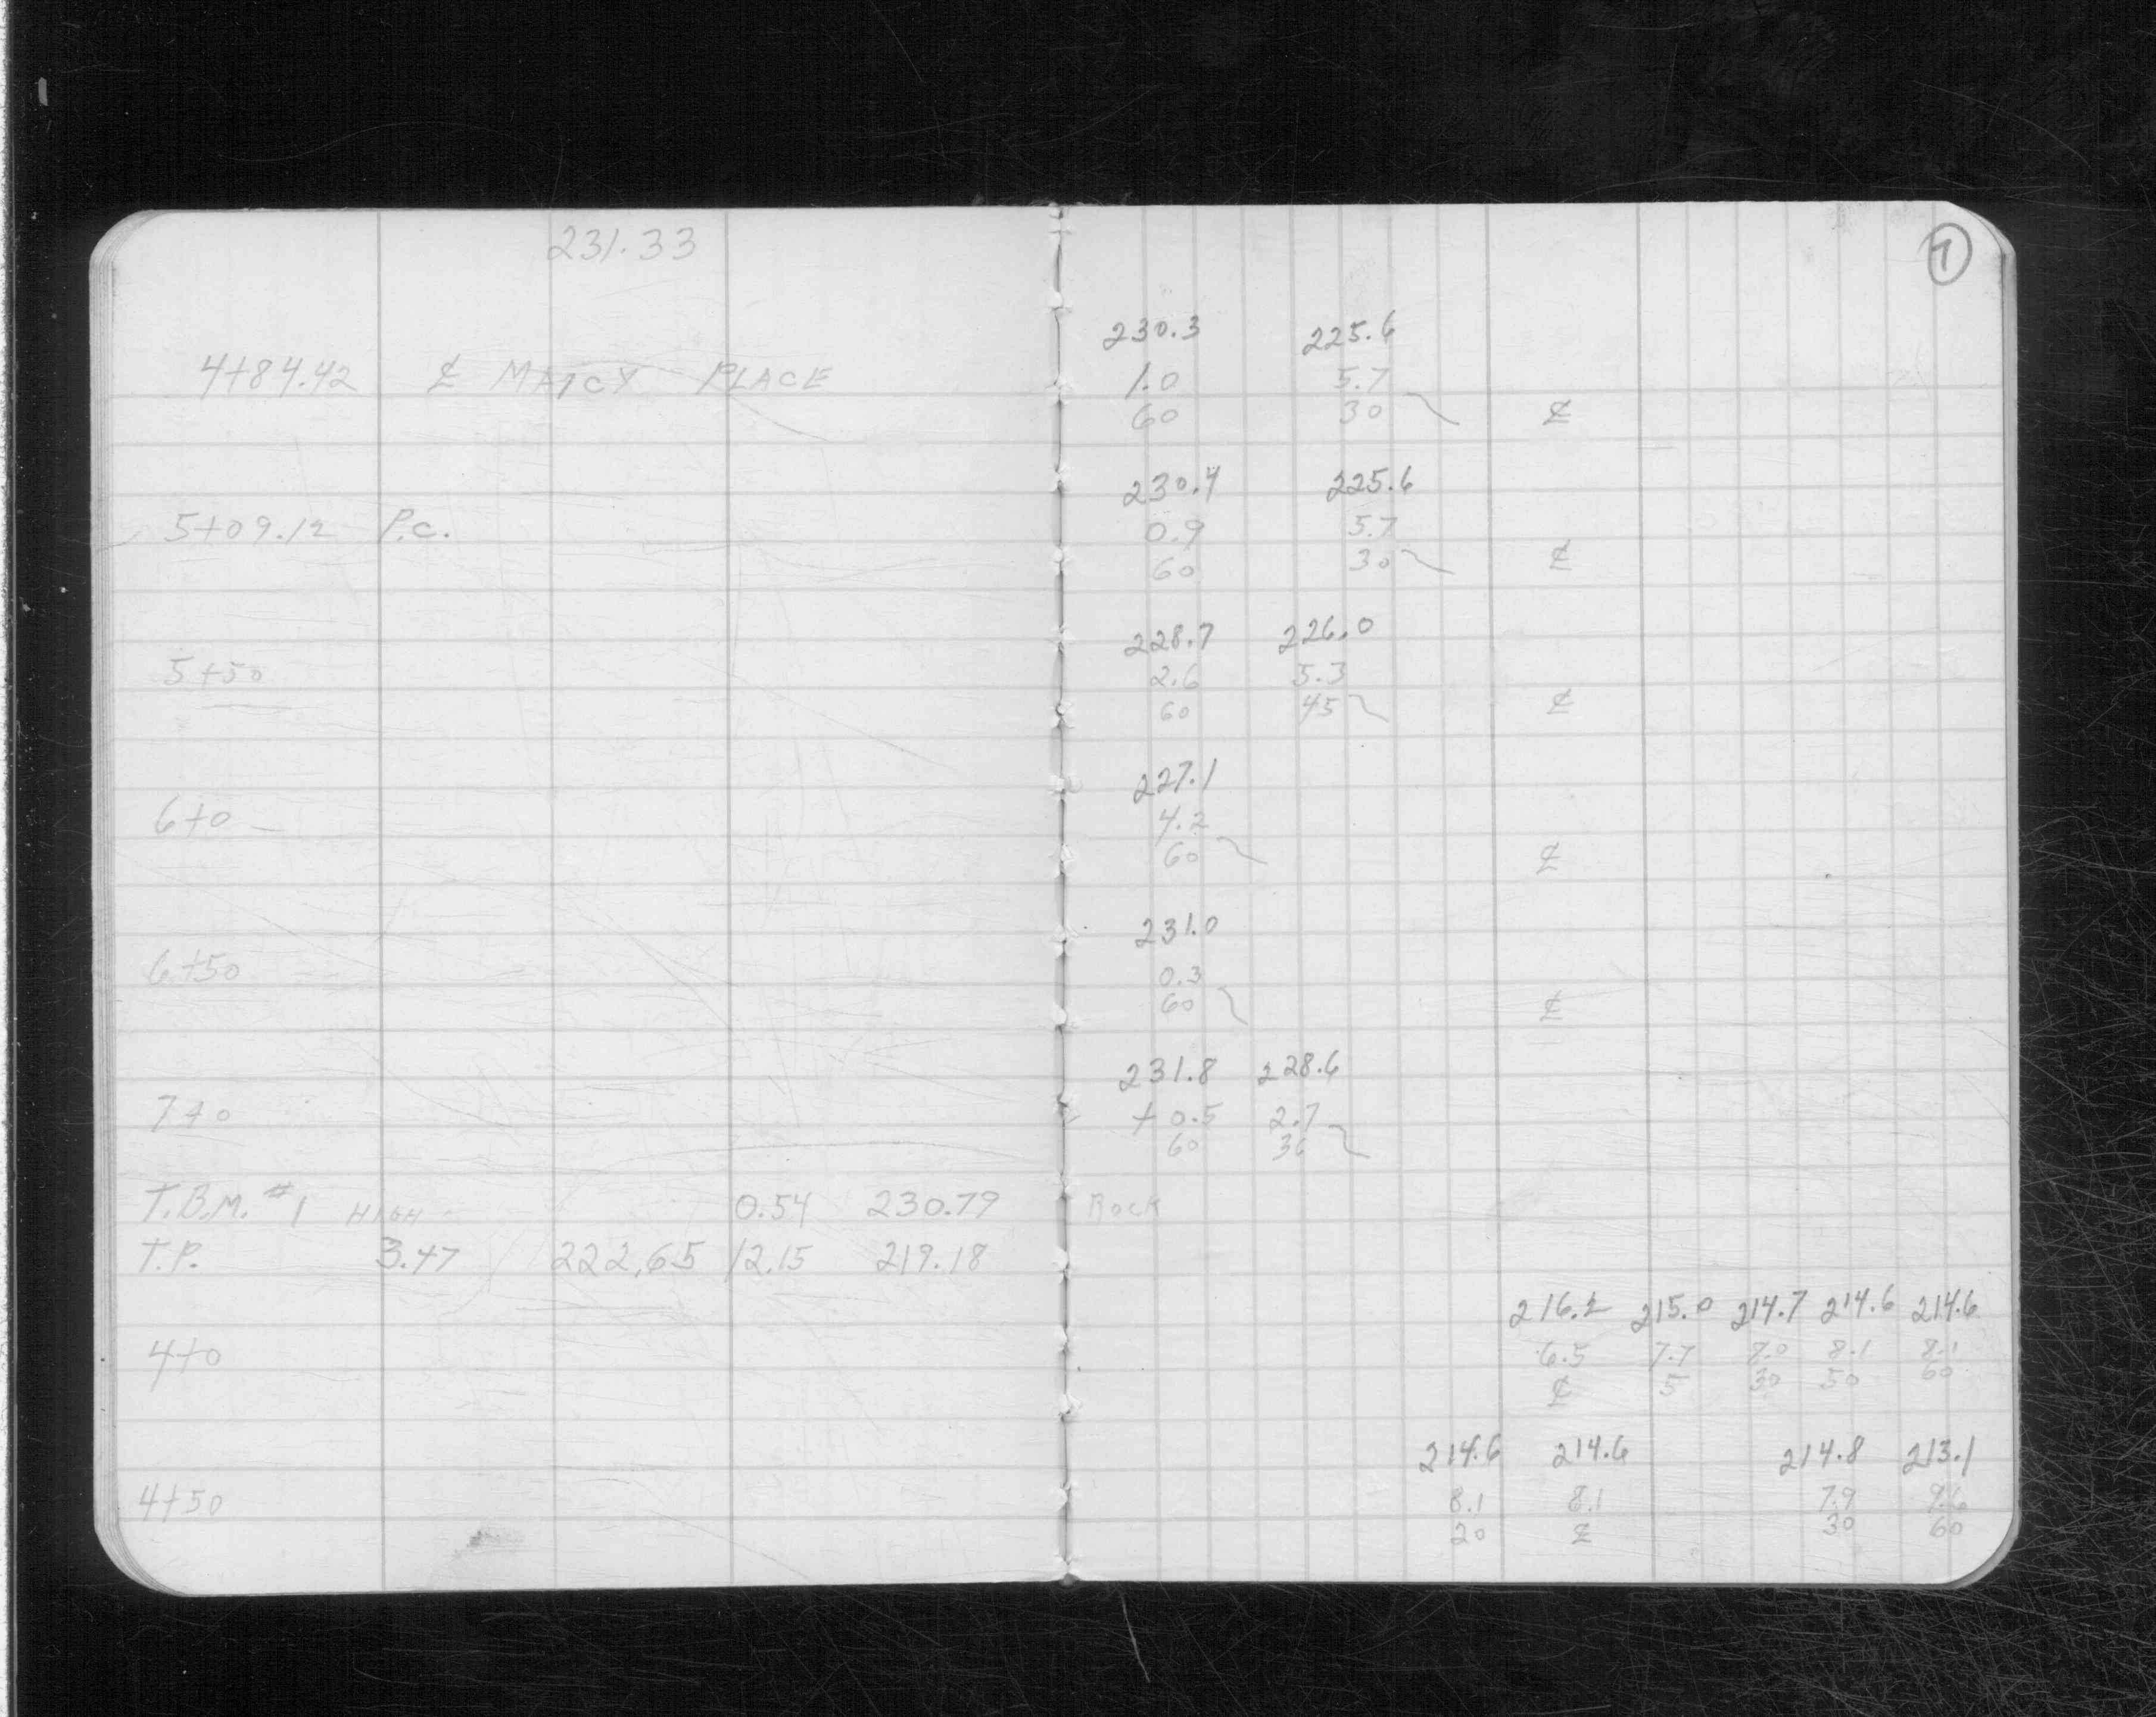 231.33
7
230.3 225.6
4+84.42 ⅊ MATCY PLACE 1.0 5.7
60 30 ⅊
230.4 225.6
5+09.12 P.C. 0.9 5.7
60 30 ⅊
228.7 226.0
5+50 2.6 5.3
60 45 ⅊
227.1
6+0 4.2
60 ⅊
231.0
6+50 0.3
60 ⅊
231.8 228.6
7+0 +0.5 2.7
60
T.B.M. #1 HIGH 0.54 230.79 ROCK
T.P. 3.47 222.65 12.15 219.18
216.2 215.0 214.7 214.6 214.6
4+0 6.5 7.7 8.1 8.1
⅊ 5 30 50 60
214.6 214.6 214.8 213.1
4+50 8.1 8.1 7.9 9.6
20 ⅊ 30 60